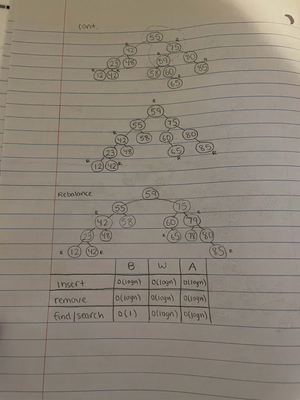 cont.
55
R R
42 75
23 48 59 80
R 12 42 R 58 60 85
65
R
59
55 75
42 58 60 80
23 48 65 85
R 12 42 R R R
Rebalance
59
55 75
42 58 60 79
23 48 65 78 80
R 12 42 R 85 R
B W A
insert O(logn) O(logn) O(logn)
remove O(logn) O(logn) O(logn)
find/search O(1) O(logn) O(logn)